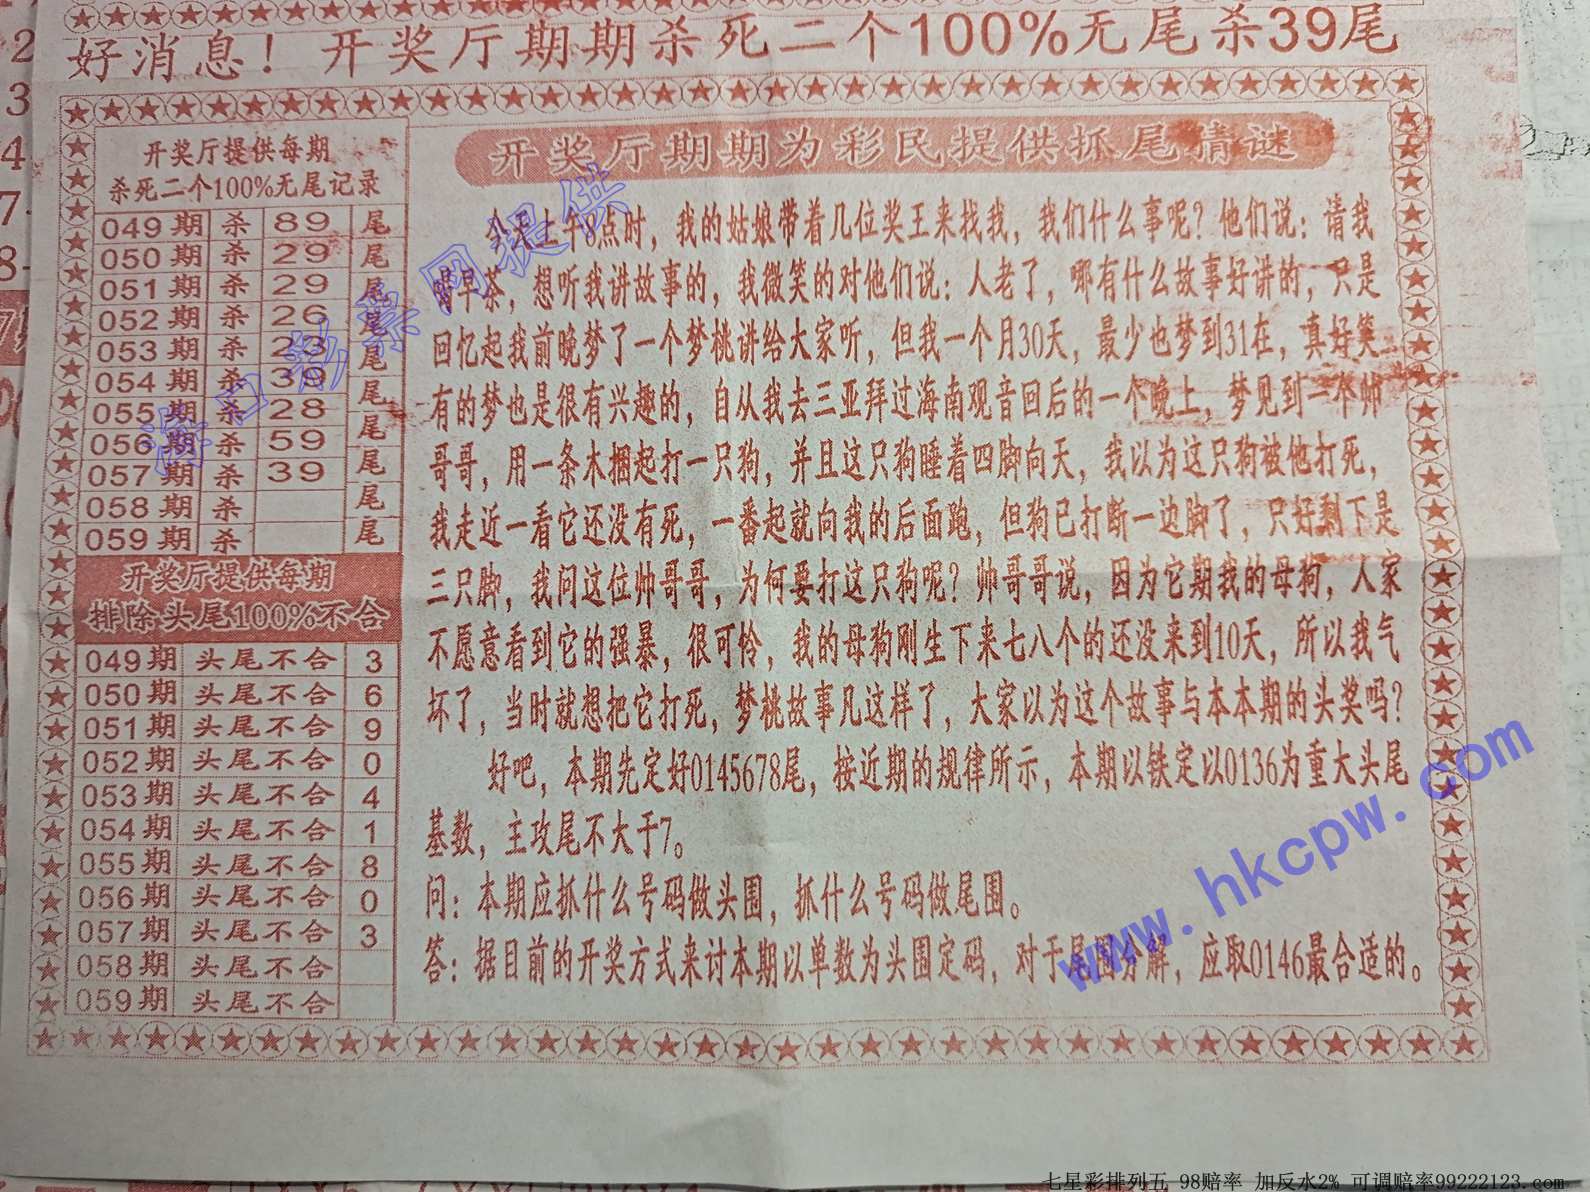 好消息！开奖厅期期杀死二个100%无尾杀39尾
开奖厅提供每期
杀死二个100%无尾记录
049期 杀 89 尾
050期 杀 29 尾
051期 杀 29 尾
052期 杀 26 尾
053期 杀 23 尾
054期 杀 39 尾
055期 杀 28 尾
056期 杀 59 尾
057期 杀 39 尾
058期 杀 尾
059期 杀 尾
开奖厅提供每期
排除头尾100%不合
049期 头尾不合 3
050期 头尾不合 6
051期 头尾不合 9
052期 头尾不合 0
053期 头尾不合 4
054期 头尾不合 1
055期 头尾不合 8
056期 头尾不合 0
057期 头尾不合 3
058期 头尾不合
059期 头尾不合
开奖厅期期为彩民提供抓尾猜谜
今天上午8点时，我的姑娘带着几位奖王来找我，我们什么事呢？他们说：请我
喝早茶，想听我讲故事的，我微笑的对他们说：人老了，哪有什么故事好讲的，只是
回忆起我前晚梦了一个梦桃讲给大家听，但我一个月30天，最少也梦到31在，真好笑
有的梦也是很有兴趣的，自从我去三亚拜过海南观音回后的一个晚上，梦见到一个帅
哥哥，用一条木捆起打一只狗，并且这只狗睡着四脚向天，我以为这只狗被他打死，
我走近一看它还没有死，一番起就向我的后面跑，但狗已打断一边脚了，只好剩下是
三只脚，我问这位帅哥哥，为何要打这只狗呢？帅哥哥说，因为它期我的母狗，人家
不愿意看到它的强暴，很可怜，我的母狗刚生下来七八个的还没来到10天，所以我气
坏了，当时就想把它打死，梦桃故事几这样了，大家以为这个故事与本本期的头奖吗？
好吧，本期先定好0145678尾，按近期的规律所示，本期以铁定以0136为重大头尾
基数，主攻尾不大于7。
问：本期应抓什么号码做头围，抓什么号码做尾围。
答：据目前的开奖方式来讨本期以单数为头围定码，对于尾围分解，应取0146最合适的。
海口彩票网提供
www.hkcpw.com
七星彩排列五 98赔率 加反水2% 可调赔率99222123.com